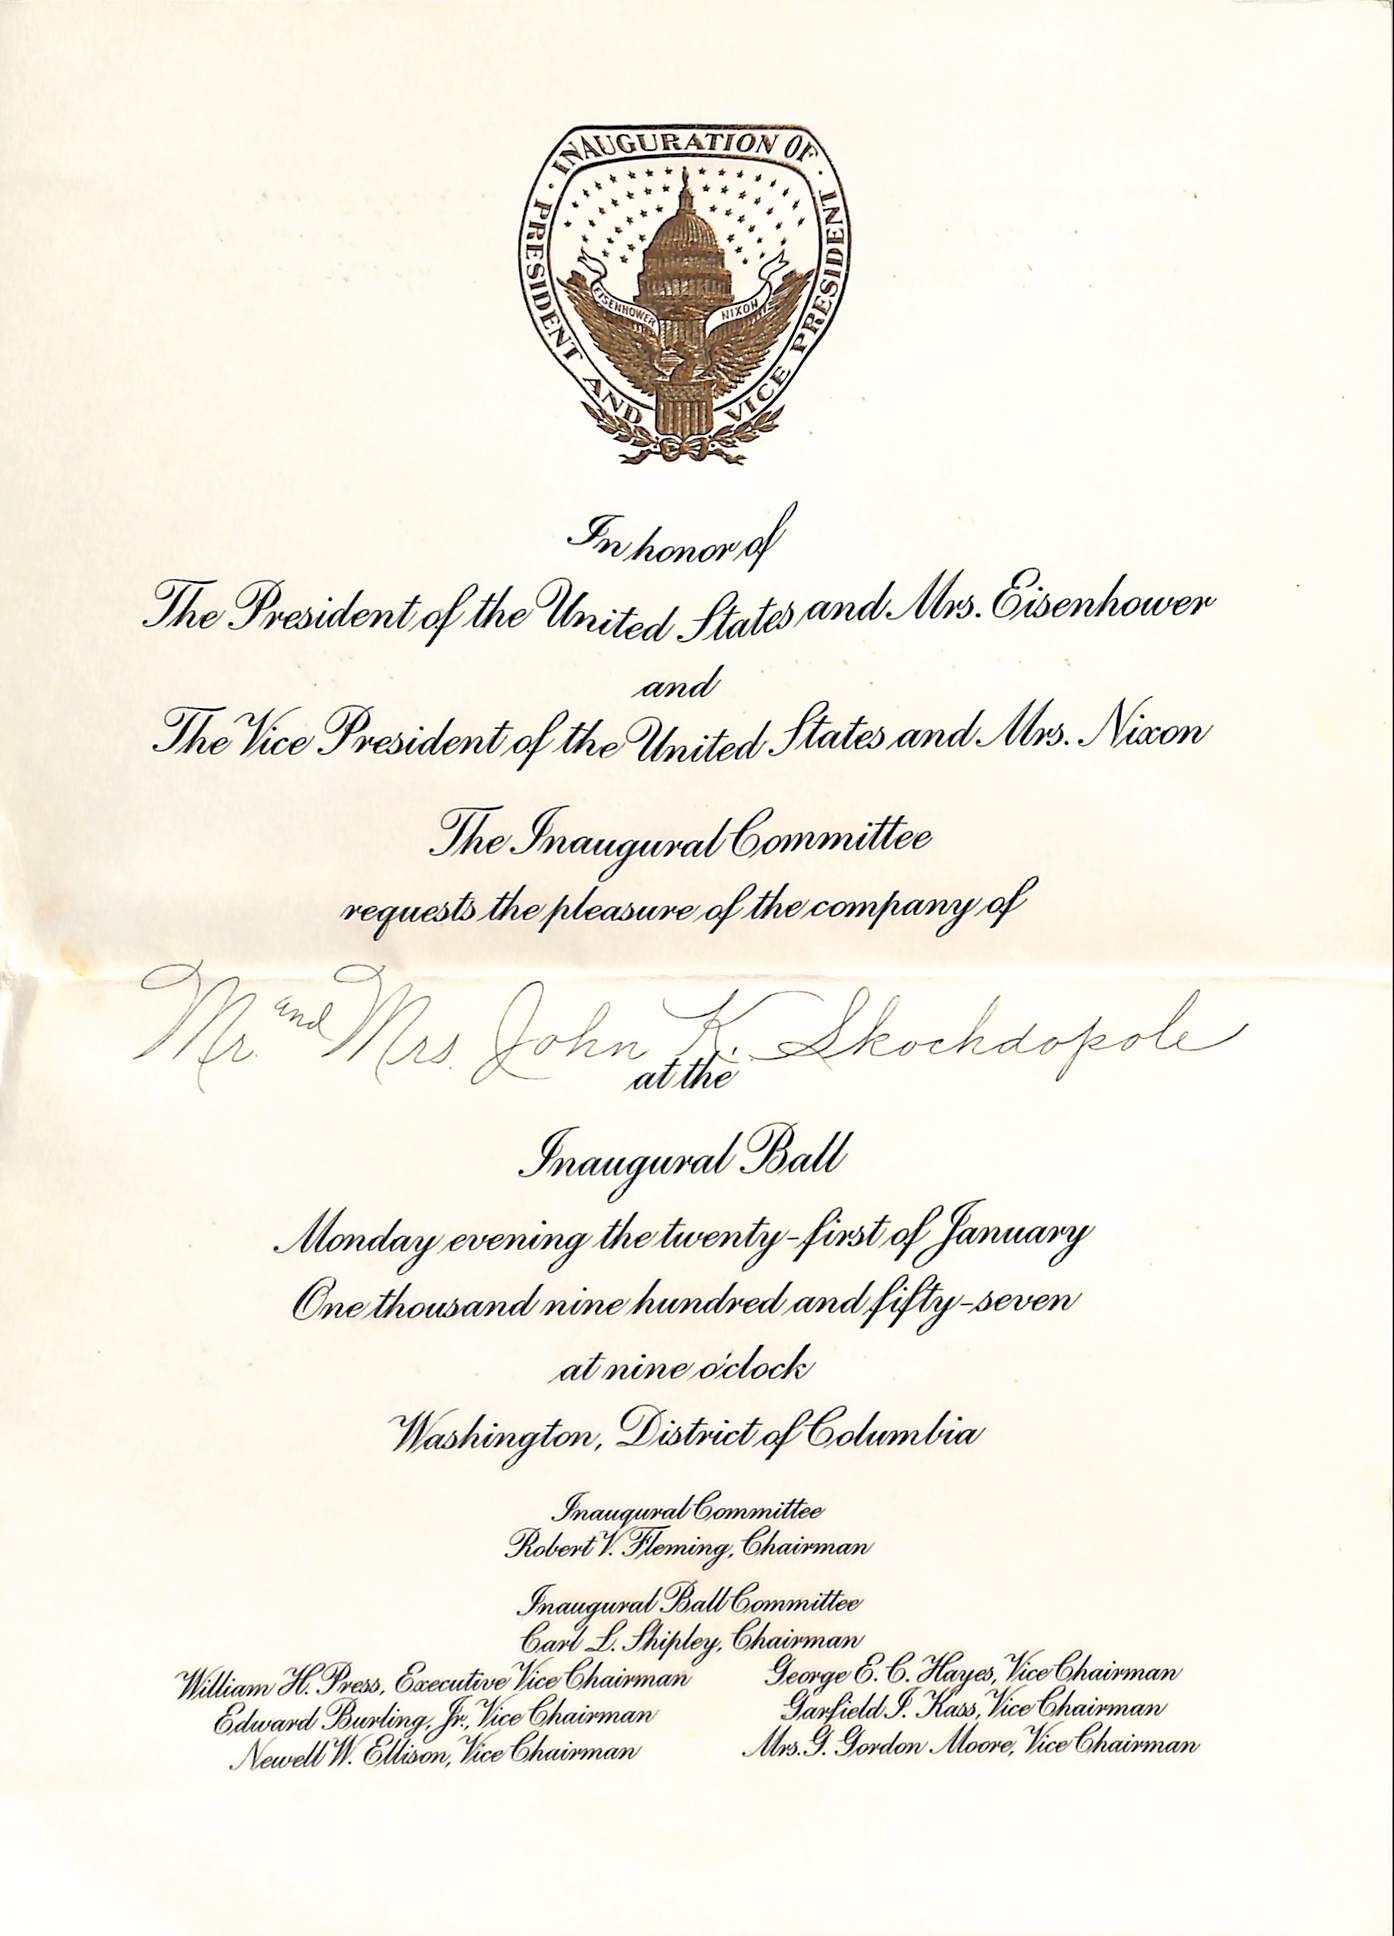 INAUGURATION OF
PRESIDENT AND VICE PRESIDENT
EISENHOWER
NIXON
In honor of
The President of the United States and Mrs. Eisenhower
and
The Vice President of the United States and Mrs. Nixon
The Inaugural Committee
requests the pleasure of the company of
Mr. and Mrs. John K. Skochdopole
at the
Inaugural Ball
Monday evening the twenty-first of January
One thousand nine hundred and fifty-seven
at nine o'clock
Washington, District of Columbia
Inaugural Committee
Robert V. Fleming, Chairman
Inaugural Ball Committee
Carl L. Shipley, Chairman
William H. Press, Executive Vice Chairman
Edward Burling, Jr., Vice Chairman
Newell W. Ellison, Vice Chairman
George E. C. Hayes, Vice Chairman
Garfield I. Kass, Vice Chairman
Mrs. G. Gordon Moore, Vice Chairman